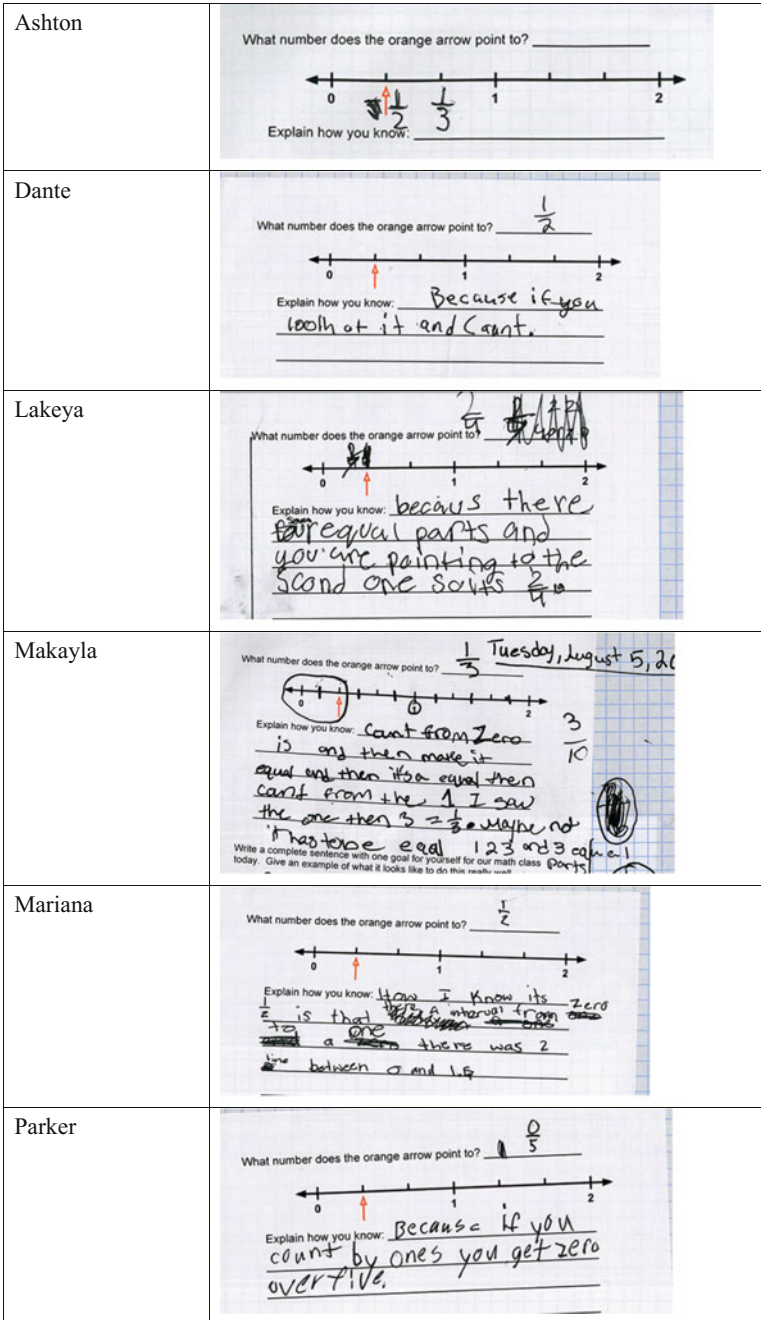 Ashton
What number does the orange arrow point to?
0 1 2
1/2 1/3
Explain how you know:
Dante
1/2
What number does the orange arrow point to?
0 1 2
Explain how you know: Because if you
look at it and Caunt.
Lakeya
2/4
What number does the orange arrow point to?
0 1 2
Explain how you know: becaus there
equal parts and
you are pointing to the
scond one so its 2/4.
Makayla
What number does the orange arrow point to? 1/3 Tuesday, August 5, 20
0 1 2
Explain how you know: Caunt from Zero
3/10
is and then make it
equal and then its a equal then
cant from the 1 I saw
the one then 3 = 1/3. Maybe not
it has to be eqal 123 and 3 equal
parts
Write a complete sentence with one goal for yourself for our math class
today. Give an example of what it looks like to do this really well
Mariana
1/2
What number does the orange arrow point to?
0 1 2
Explain how you know: How I Know its
1/2 is that there a interval from zero
to a one there was 2
line between 0 and 1.5
Parker
0/5
What number does the orange arrow point to?
0 1 2
Explain how you know: Because if you
count by ones you get zero
over five.